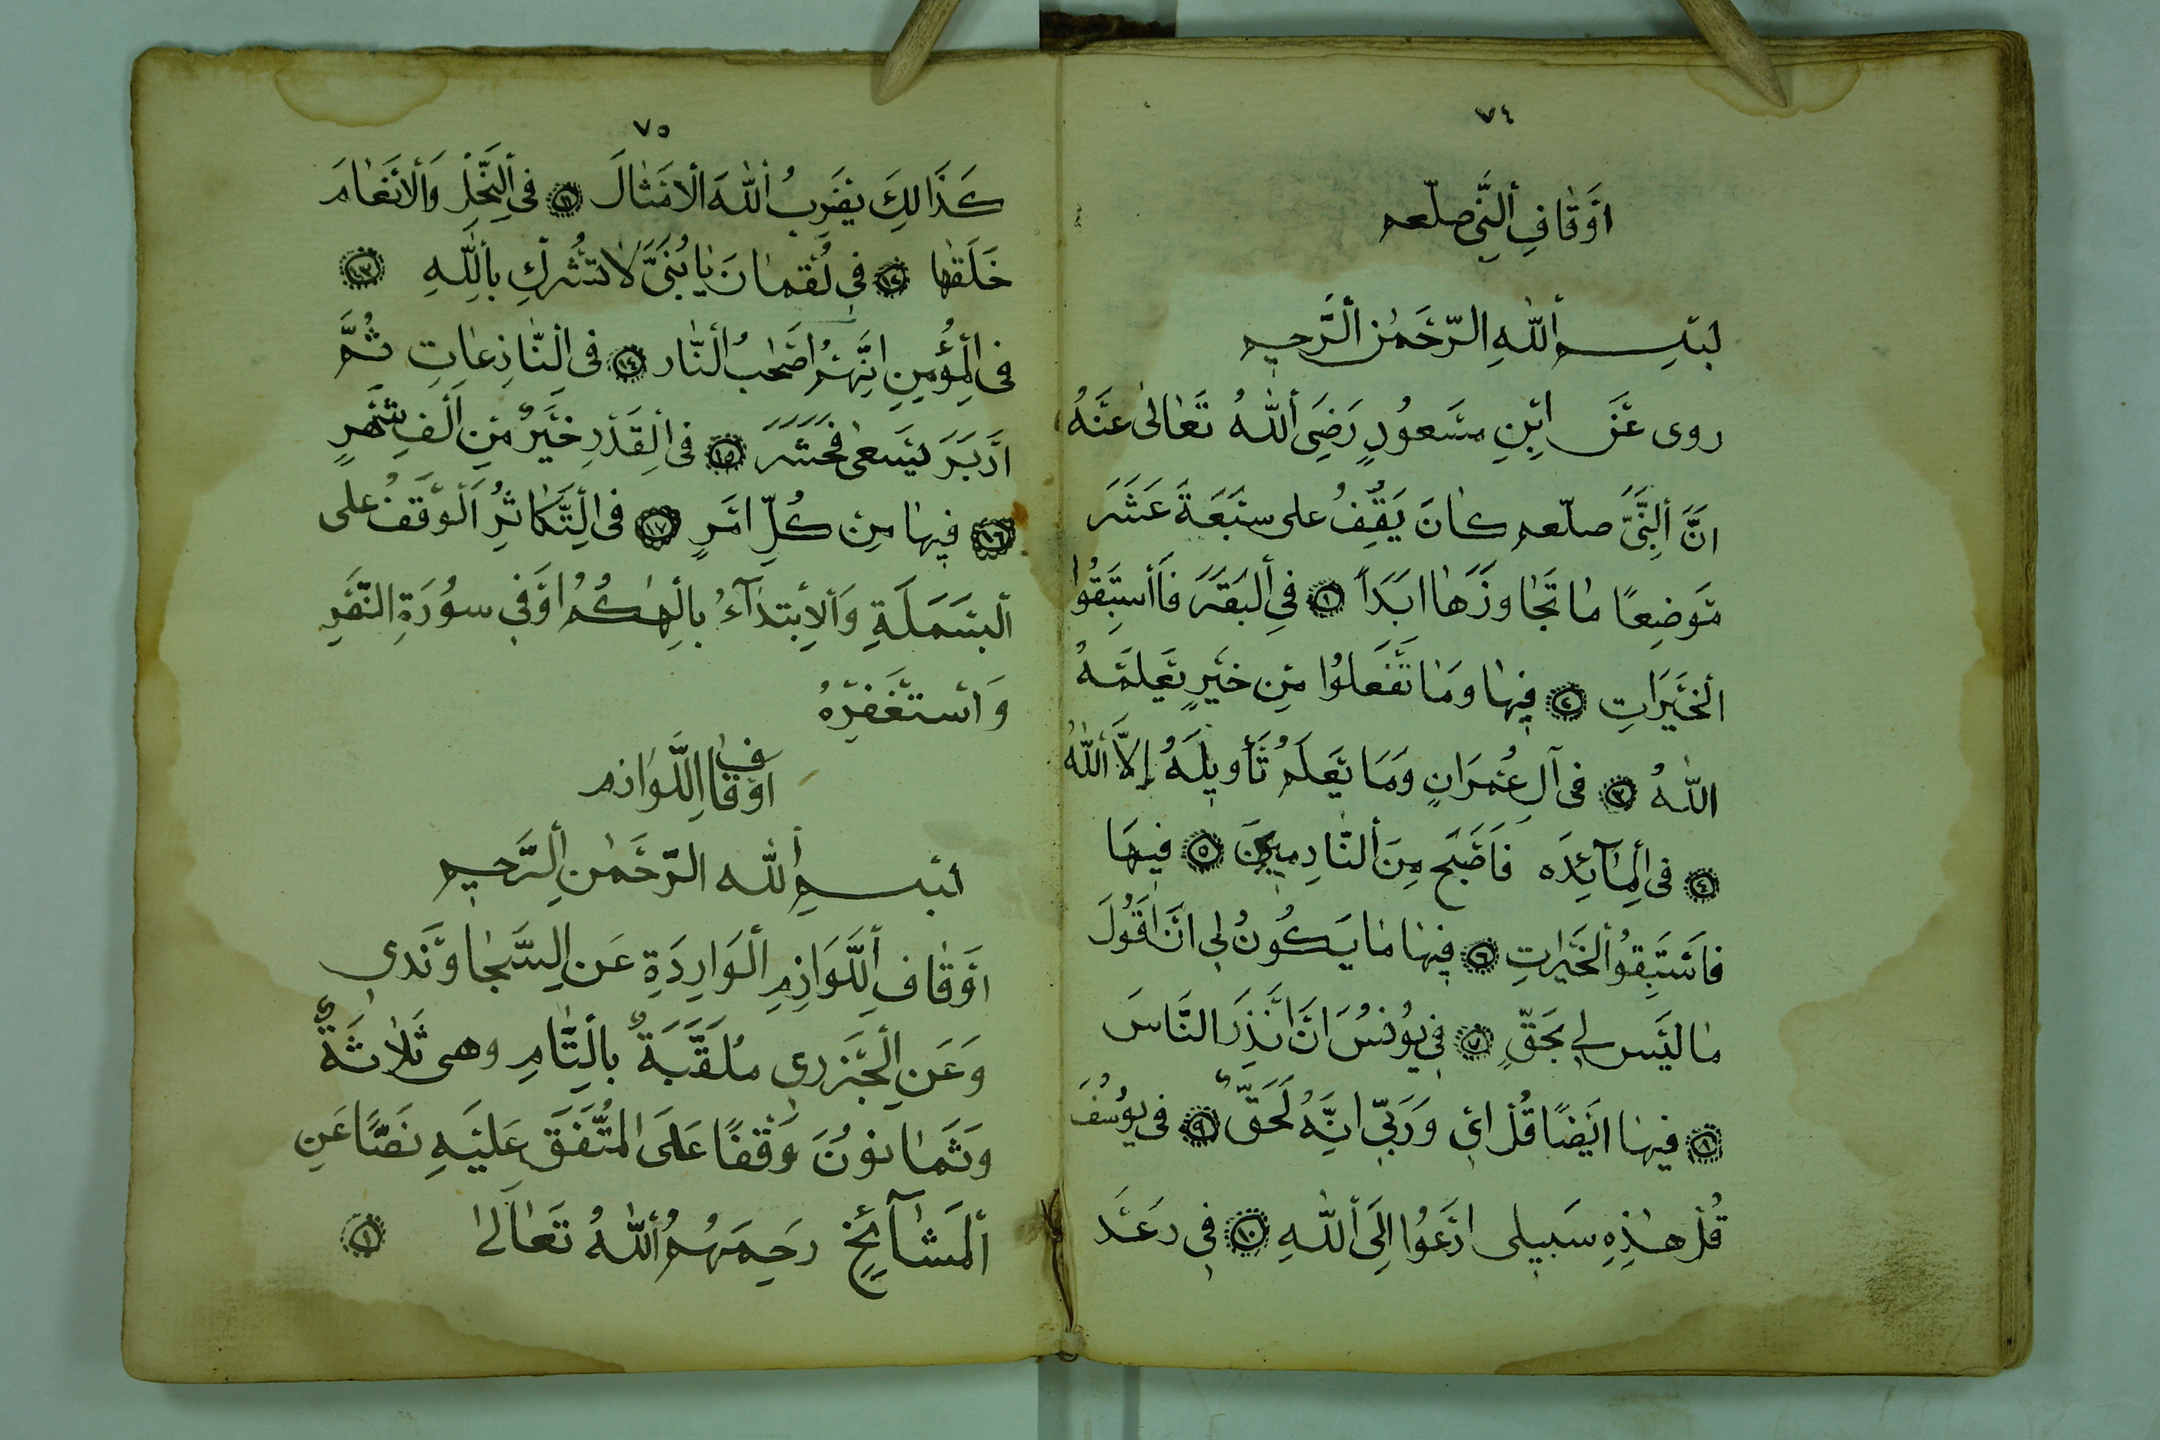 ٧٤
اَوْقَافِ اَلنَّبِى صلّعم
بِسْمِ اللّٰهِ الرَّحْمٰنِ الرَّحِيمِ
روى عَنْ ابْنِ مَسْعُودٍ رَضِيَ اَللّٰهُ تَعَالٰى عَنْهُ
اَنَّ اَلنَّبِىَّ صلّعم كَانَ يَقِفُ على سَبْعَةَ عَشَرَ
مَوْضِعًا مَا تَجَاوَزَهَا اَبَدًا ١ فِى اَلْبَقَرَ فَاَسْتَبِقُوا
اَلْخَيْرَاتِ ٢ فِيهَا وَمَا تَفْعَلُوا مِنْ خَيْرٍ يَعْلَمْهُ
اللّٰهُ ٣ فى آلِ عُمْرَانٍ وَمَا يَعْلَمُ تَأْوِيلَهُ إِلَّا اَللّٰهُ
٤ فى اَلْمَآئِدَه فَاَصْبَحَ مِنَ اَلنَّادِمِينَ ٥ فِيهَا
فَاسْتَبِقُوا اَلْخَيْرَاتِ ٦ فِيهَا مَا يَكُونُ لِى اَنْ اَقُولَ
مَا لَيْسَ لِى بِحَقٍّ ٧ فِى يُونُسُ اَنْ اَنْذِرِ النَّاسَ
٨ فِيهَا اَيْضًا قُلْ اِى وَرَبِّى اِنَّهُ لَحَقٌّ ٩ فى يُوسُفَ
قُلْ هٰذِهِ سَبِيلِى ادْعُوا اِلَى اَللّٰهِ ١٠ فِى رَعْدَ
٧٥
كَذَالِكَ يَضْرِبُ اَللّٰهَ اَلْاَمْثَالَ ١١ فى اَلنَّحْلِ وَالْاَنْعَامَ
خَلَقَهَا ١٢ فى لُقْمَانَ يَا بُنَىَّ لَا تُشْرِكْ بِاَللّٰهِ ١٣
فى اَلْمُؤْمِنِ اِنَّهُمْ اَصْحٰبُ اَلنَّار ١٤ فى اَلنَّازِعَاتِ ثُمَّ
اَدْبَرَ يَسْعٰى فَحَشَرَ ١٥ فى اَلْقَدْرِ خَيْرٌ مِنْ اَلْفِ شَهْرٍ
١٦ فِيهَا مِنْ كُلِّ اَمْرٍ ١٧ فى اَلتَّكَاثُرِ اَلْوَقْفُ على
اَلْبَسْمَلَةِ وَالْاِبْتِدَآءُ بِاَلْهٰكُمْ اَوْ فى سُورَةِ النَّصْرِ
وَاسْتَغْفِرْهُ
اَوْقَافُ اَللَّوَازِم
بِسْمِ اَللّٰه الرَّحْمٰنِ اَلرَّحِيمِ
اَوْقَافِ اَللَّوَازِمِ اَلْوَارِدَةِ عَنِ اَلسَّجَاوَنْدِى
وَعَنِ اَلْجَزَرِى مُلَقَّبَةٌ بِاَلتَّامِ وهى ثَلَاثَةٌ
وَثَمَانُونَ وَقْفًا عَلَى الْمُتَّفَقَ عَلَيْهِ نَصًّا عَنِ
اَلْمَشَآئِخِ رَحِمَهُمُ اَللّٰهُ تَعَالٰى ١